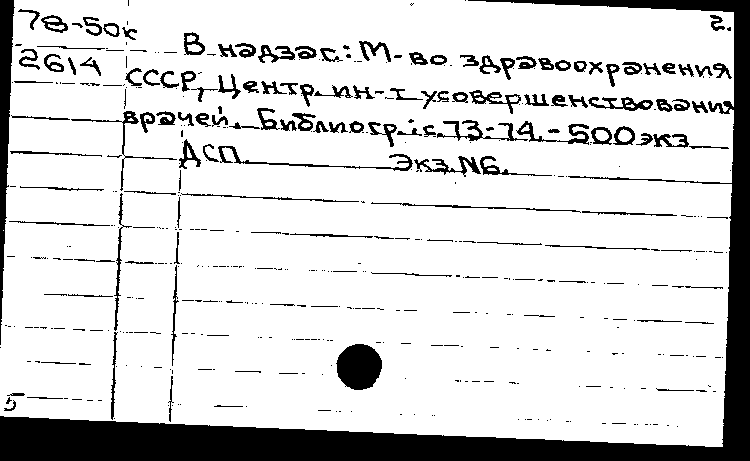 2.
78-50к
2614
В надзаг.: М-во здравоохранения
СССР, Центр. ин-т усовершенствования
врачей. Библиогр.: с. 73-74. - 500 экз
ДСП. Экз. N6.
5